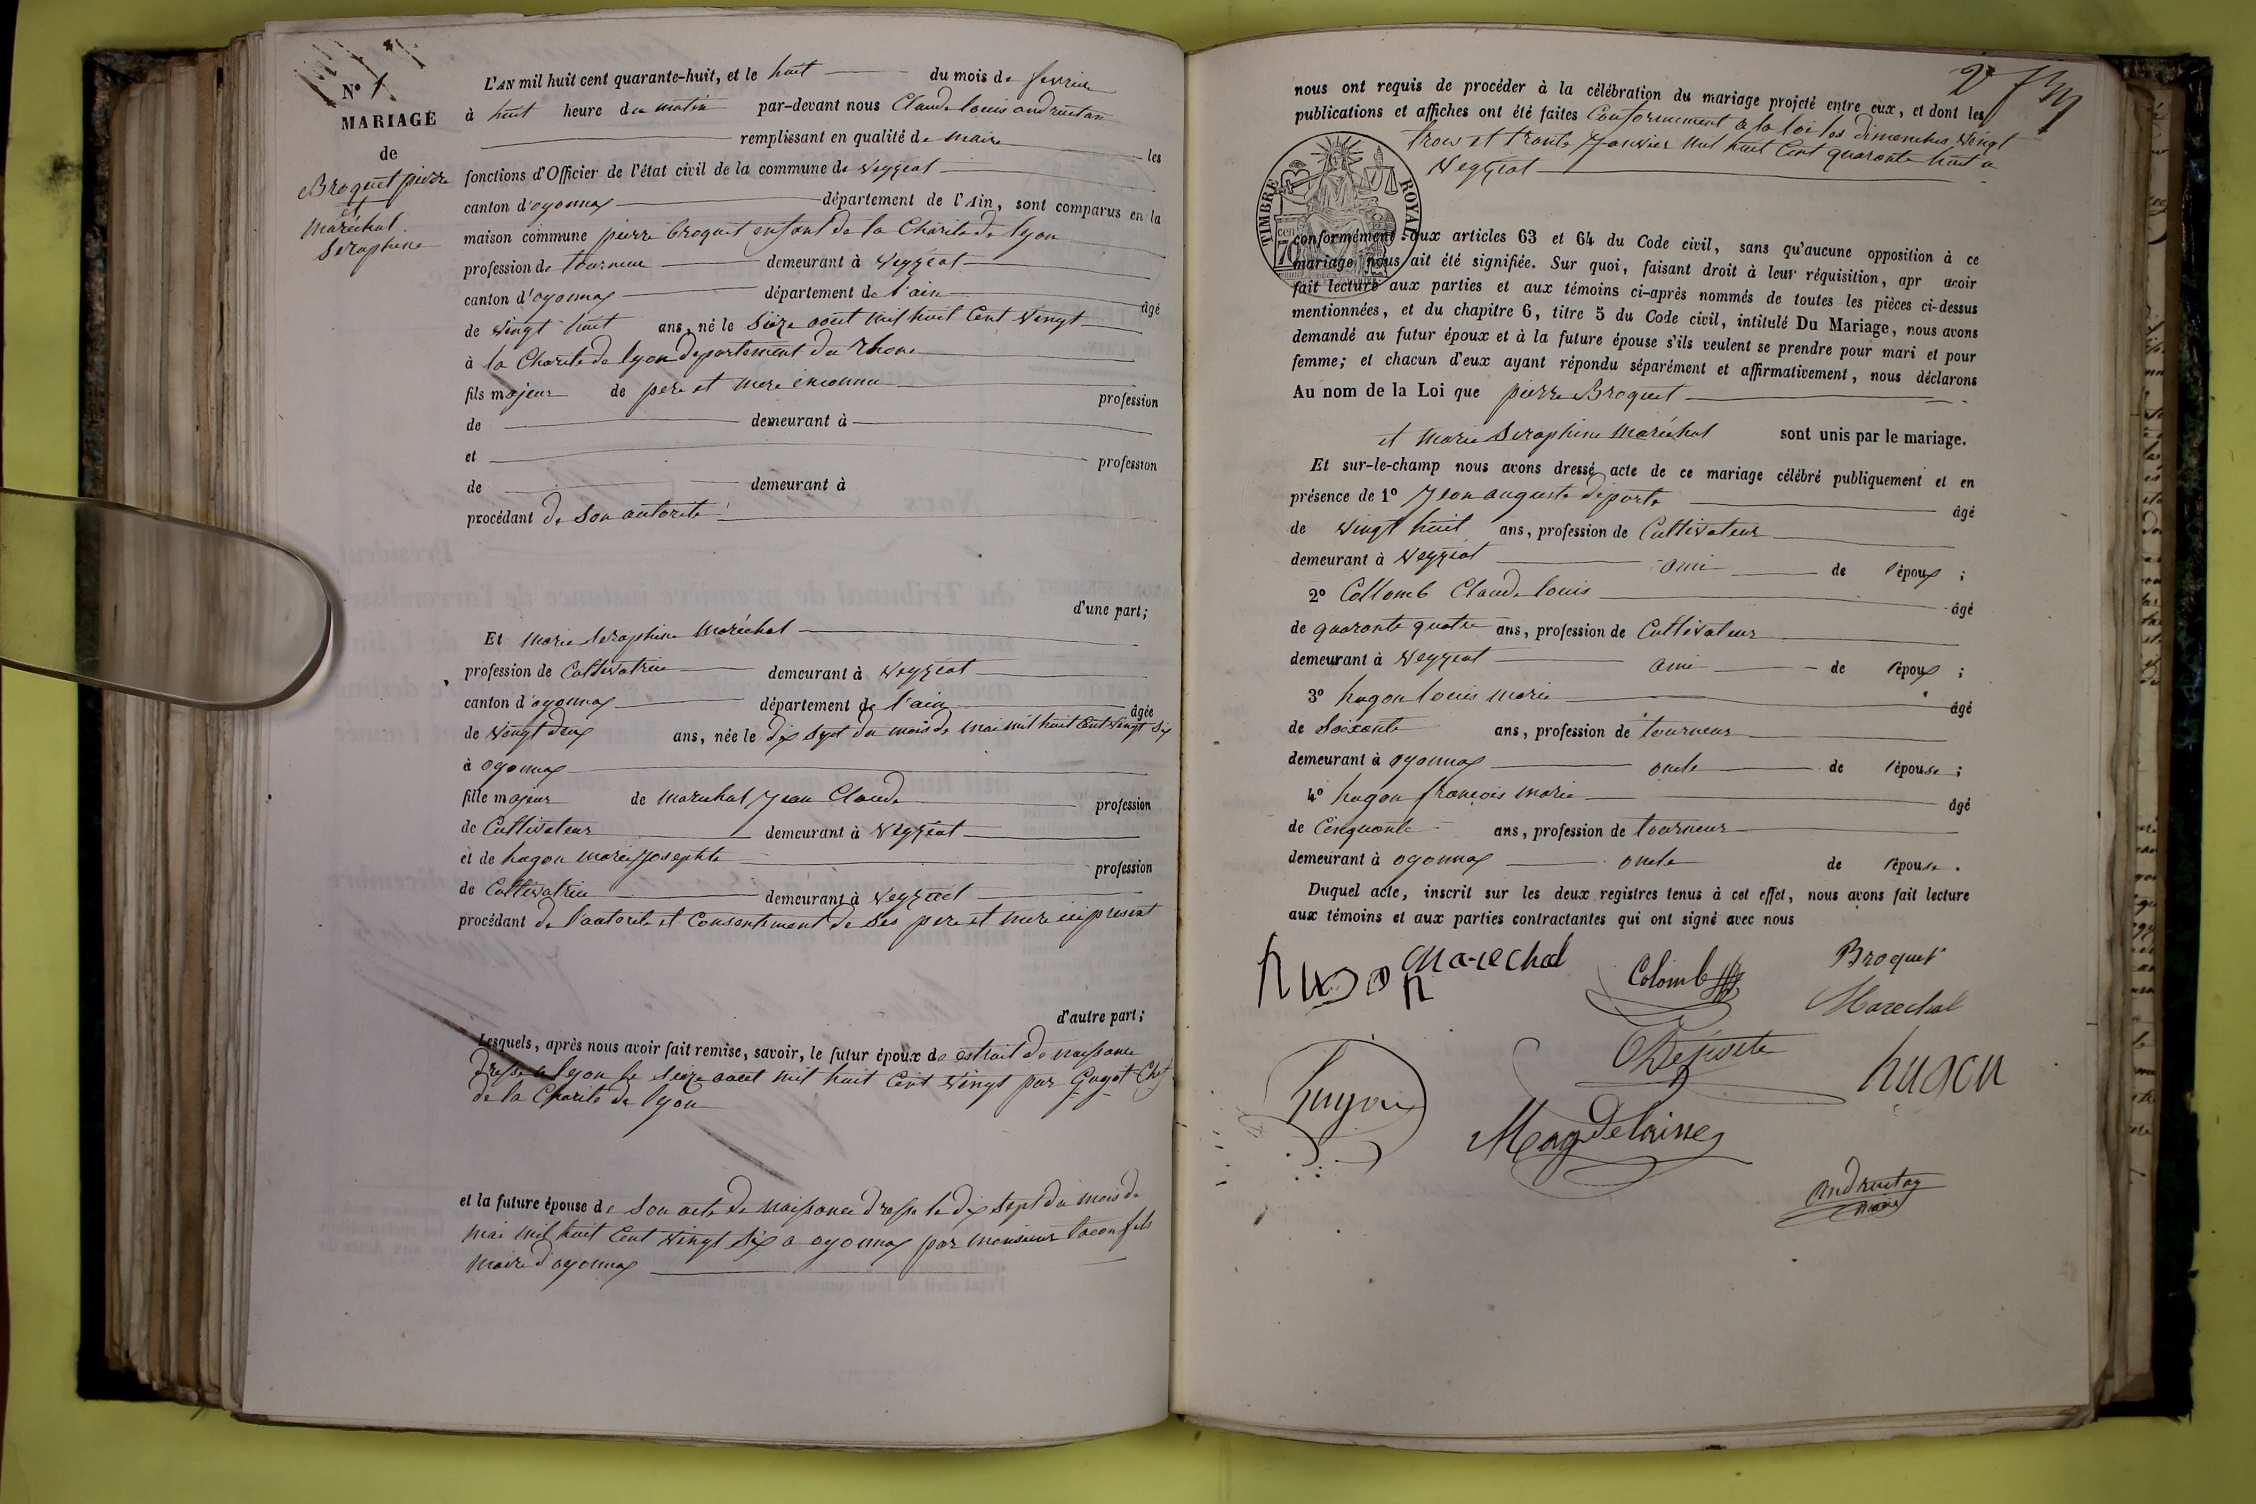 N° 1
MARIAGE
de
Broquet pierre
et
Maréchal
Seraphine
L'AN mil huit cent quarante-huit, et le huit du mois de fevrier
à huit heure du matin par-devant nous Claude louis andruetan
remplissant en qualité de maire les
fonctions d'Officier de l'état civil de la commune de Veyziat
canton d'oyonnax département de l'Ain, sont comparus en la
maison commune pierre broquet enfant de la Charite de lyon
profession de tourneur demeurant à Veyziat
canton d'oyonnax département de l'ain âgé
de vingt huit ans, né le Sieze aout mil huit Cent Vingt
à la Charite de lyon departement du Rhone
fils majeur de pere et mere inconnu profession
de demeurant à
et profession
de demeurant à
procédant de son autorite
d'une part;
Et Marie Seraphine Maréchal
profession de Cultivatrice demeurant à Veyziat
canton d'oyonnax département de l'ain âgée
de Vingt deux ans, née le dix Sept du mois de Mai mil huit Cent Vingt Six
à oyonnax
fille majeur de marechal Jean Claude profession
de Cultivateur demeurant à Veyziat
et de hugon marie Josephte profession
de Cultivatrice demeurant à Veyziat
procédant de l'autorite et Consentement de Ses pere et mere ici present
d'autre part;
Lesquels, après nous avoir fait remise, savoir, le futur époux de extrait de naissance
dressé a lyon le Sieze aout mil huit Cent Vingt par Guyot Chef
de la Charite de lyon
et la future épouse de Son acte de Naissance dressé le dix Sept du mois de
mai mil huit Cent Vingt Six a oyonnax par Monsieur fils
Maire d'oyonnax
2
nous ont requis de procéder à la célébration du mariage projeté entre eux, et dont les
publications et affiches ont été faites Conformement a la loi les dimanches Vingt
trois et trante Janvier mil huit Cent quarante huit a
Veyziat
TIMBRE ROYAL
70 cen
conformément aux articles 63 et 64 du Code civil, sans qu'aucune opposition à ce
mariage nous ait été signifiée. Sur quoi, faisant droit à leur réquisition, apr avoir
fait lecture aux parties et aux témoins ci-après nommés de toutes les pièces ci-dessus
mentionnées, et du chapitre 6, titre 5 du Code civil, intitulé Du Mariage, nous avons
demandé au futur époux et à la future épouse s'ils veulent se prendre pour mari et pour
femme; et chacun d'eux ayant répondu séparément et affirmativement, nous déclarons
Au nom de la Loi que pierre Broquet
et Marie Seraphine Maréchal sont unis par le mariage.
Et sur-le-champ nous avons dressé acte de ce mariage célébré publiquement et en
présence de 1° Jean auguste deporte âgé
de Vingt huit ans, profession de Cultivateur
demeurant à Veyziat ami de l'époux ;
2° Collomb Claude louis âgé
de quarante quatre ans, profession de Cultivateur
demeurant à Veyziat ami de l'époux ;
3° hugon louis marie âgé
de Soixante ans, profession de tourneur
demeurant à oyonnax oncle de l'épouse ;
4° hugon françois marie âgé
de Cinquante ans, profession de tourneur
demeurant à oyonnax oncle de l'épouse .
Duquel acte, inscrit sur les deux registres tenus à cet effet, nous avons fait lecture
aux témoins et aux parties contractantes qui ont signé avec nous
hugon Marechal Colomb Broquet
Marechal
Déporte hugon
hugon
andruetan
maire